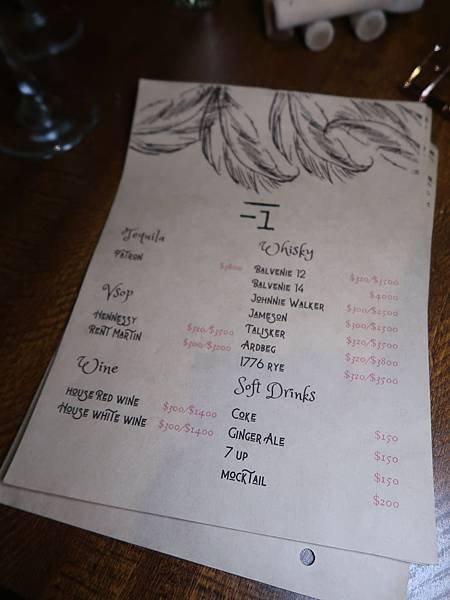 -1
Tequila
Patron $3800
Vsop
Hennessy $320/$3500
Remt Martin $300/$3200
Wine
House Red Wine $300/$1400
House White Wine $300/$1400
Whisky
Balvenie 12 $320/$3500
Balvenie 14 $4000
Johnnie Walker $300/$2500
Jameson $300/$2500
Talisker $320/$3500
Ardbeg $320/$3800
1776 Rye $320/$3500
Soft Drinks
Coke $150
Ginger Ale $150
7 up $150
Mocktail $200